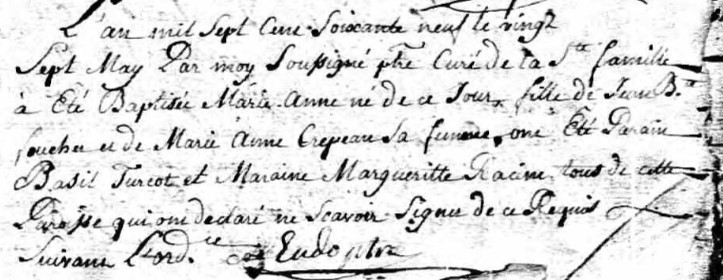 L'an mil Sept Cent Soixante neuf le vingt
Sept May Par moy Soussigné ptre Curé de la Ste famille
à Eté Baptisée Marie Anne né de ce Jour, fille de Jean Bte
foucher et de Marie Anne Crepeau Sa femme, ont Eté Parain
Basil Turcot et Maraine Margueritte Racine tous de cette
Paroisse qui ont declaré ne Scavoir Signer de ce Requis
Suivant L'ord.ce Eudo ptre